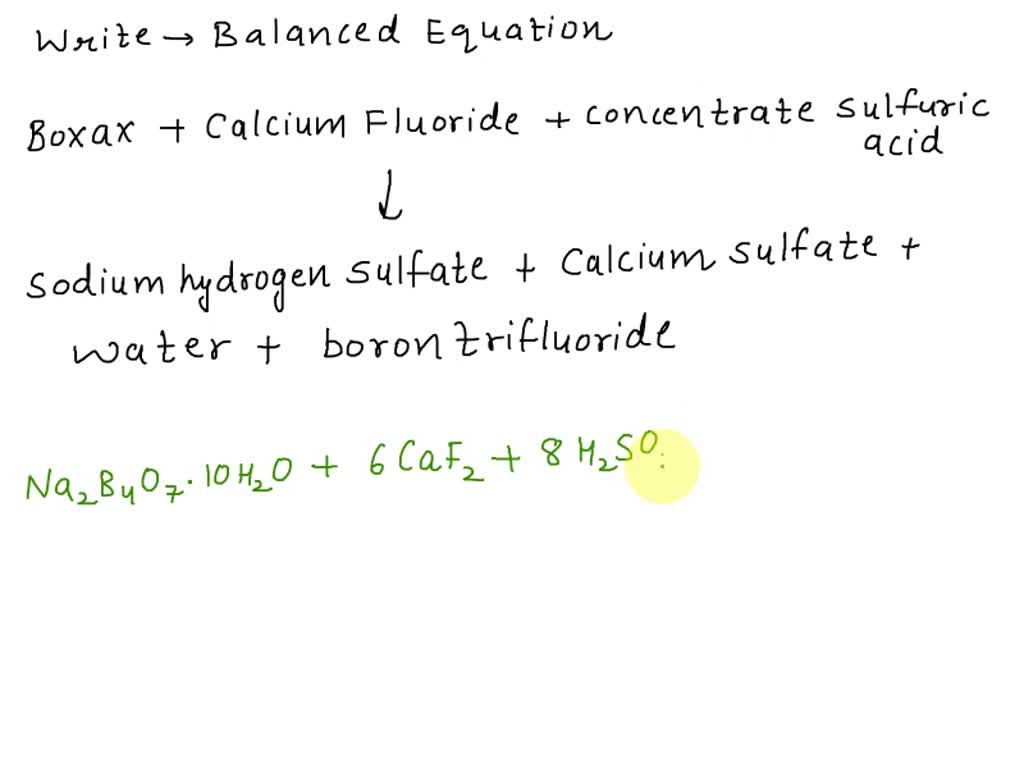 Write → Balanced Equation
Boxax + Calcium Fluoride + concentrate sulfuric
acid
↓
Sodium hydrogen sulfate + Calcium sulfate +
water + boron trifluoride
Na₂B₄O₇·10H₂O + 6CaF₂ + 8H₂SO